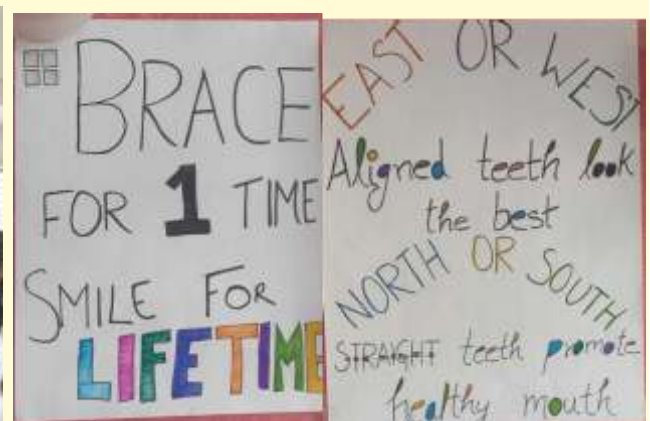 BRACE
FOR 1 TIME
SMILE FOR
LIFETIME
EAST OR WEST
Aligned teeth look
the best
NORTH OR SOUTH
STRAIGHT teeth promote
healthy mouth